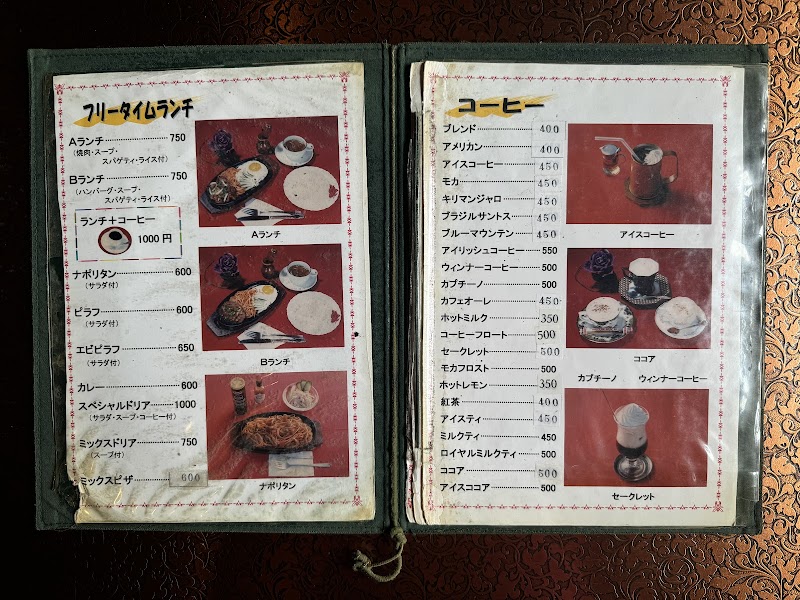 フリータイムランチ
Aランチ 750
(焼肉・スープ・
スパゲティ・ライス付)
Bランチ 750
(ハンバーグ・スープ・
スパゲティ・ライス付)
ランチ+コーヒー
1000円
ナポリタン 600
(サラダ付)
ピラフ 600
(サラダ付)
エビピラフ 650
(サラダ付)
カレー 600
スペシャルドリア 1000
(サラダ・スープ・コーヒー付)
ミックスドリア 750
(スープ付)
ミックスピザ 600
Aランチ
Bランチ
ナポリタン
コーヒー
ブレンド 400
アメリカン 400
アイスコーヒー 450
モカ 450
キリマンジャロ 450
ブラジルサントス 450
ブルーマウンテン 450
アイリッシュコーヒー 550
ウィンナーコーヒー 500
カプチーノ 500
カフェオーレ 450
ホットミルク 350
コーヒーフロート 500
セークレット 500
モカフロスト 500
ホットレモン 350
紅茶 400
アイスティ 450
ミルクティ 450
ロイヤルミルクティ 500
ココア 500
アイスココア 500
アイスコーヒー
ココア
カプチーノ ウィンナーコーヒー
セークレット